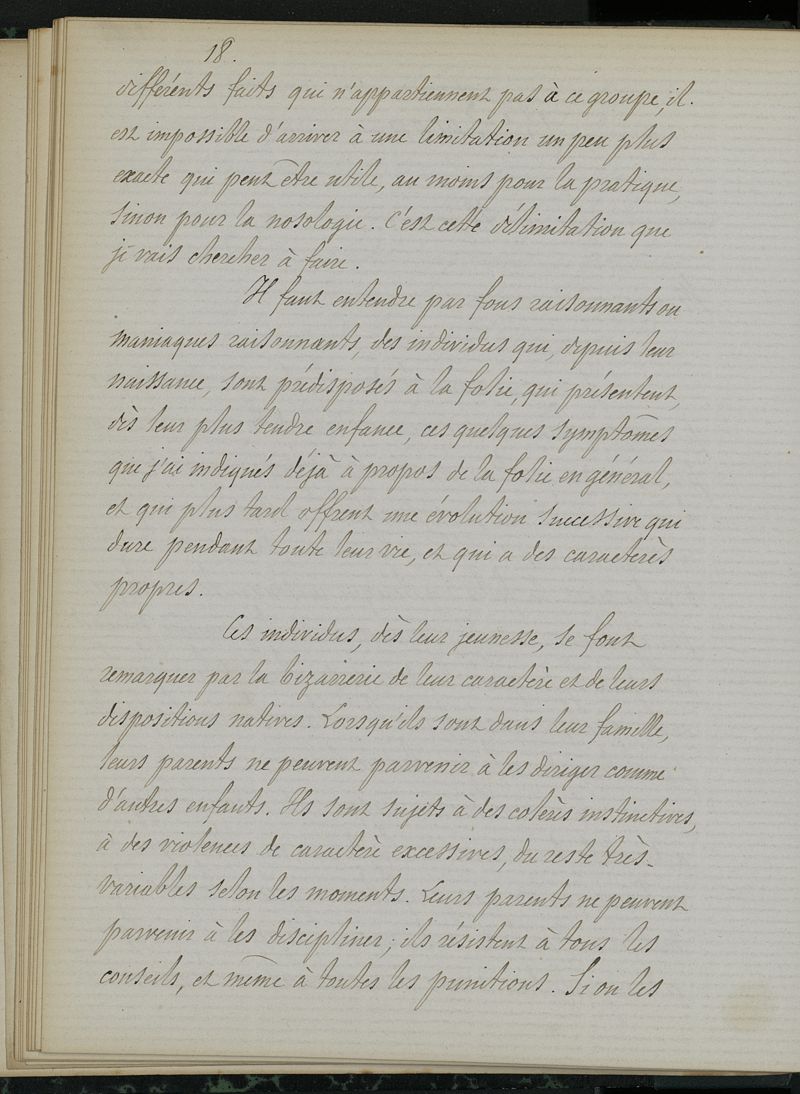 18.
différents faits qui n'appartiennent pas à ce groupe, il
est impossible d'arriver à une limitation un peu plus
exacte qui peut être utile, au moins pour la pratique,
sinon pour la nosologie. C'est cette délimitation que
je vais chercher à faire.
Il faut entendre par fous raisonnants ou
maniaques raisonnants, des individus qui, depuis leur
naissance, sont prédisposés à la folie, qui présentent,
dès leur plus tendre enfance, ces quelques symptômes
que j'ai indiqués déjà à propos de la folie en général,
et qui plus tard offrent une évolution successive qui
dure pendant toute leur vie, et qui a des caractères
propres.
Ces individus, dès leur jeunesse, se font
remarquer par la bizarrerie de leur caractère et de leurs
dispositions natives. Lorsqu'ils sont dans leur famille,
leurs parents ne peuvent parvenir à les diriger comme
d'autres enfants. Ils sont sujets à des colères instinctives,
à des violences de caractère excessives, du reste très-
variables selon les moments. Leurs parents ne peuvent
parvenir à les discipliner; ils résistent à tous les
conseils, et même à toutes les punitions. Si on les